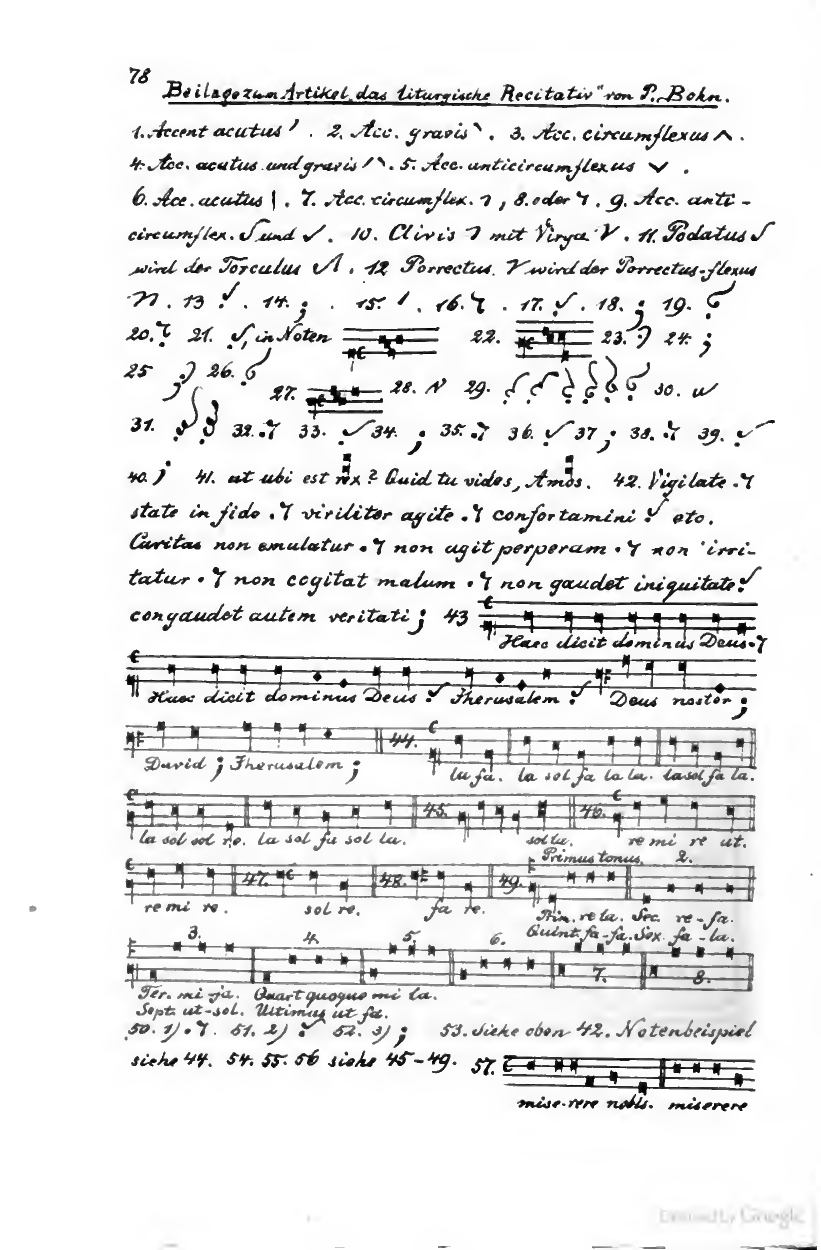 78
Beilage zum Artikel „das liturgische Recitativ" von P. Bohn.
1. Accent acutus ʹ . 2. Acc. gravis ˋ . 3. Acc. circumflexus ʌ .
4. Acc. acutus und gravis /\ . 5. Acc. anticircumflexus v .
6. Acc. acutus | . 7. Acc. circumflex. , 8. oder . 9. Acc. anti-
circumflex. und . 10. Clivis mit Virga V . 11. Podatus
wird der Torculus . 12 Porrectus wird der Porrectus-flexus
. 13 . 14. ; . 15. . 16. . 17. . 18. ; 19.
20. 21. , in Noten 22. 23. 24. ;
25 26.
27. 28. 29. 30.
31. 32. 33. 34. ; 35. 36. 37 ; 38. 39.
40. 41. ut ubi est rex? Quid tu vides, Amos. 42. Vigilate .
state in fide . viriliter agite . confortamini etc.
Caritas non emulatur . non agit perperam . non irri-
tatur . non cogitat malum . non gaudet iniquitate
congaudet autem veritati ; 43
Haec dicit dominus Deus.
Haec dicit dominus Deus Jherusalem Deus noster ;
44.
David ; Jherusalem ; la fa. la sol fa la la. la sol fa la.
45. 46.
la sol sol re. la sol fa sol la. sol la. re mi re ut.
Primus tonus. 2.
47. 48. 49.
re mi re. sol re. fa re. Prim. re la. Sec. re-fa.
3. 4. 5. 6. Quint. fa-fa. Sex. fa-la.
7. 8.
Ter. mi-fa. Quart quoque mi la.
Sept. ut-sol. Ultimus ut fa.
50. 1) . 51. 2) 52. 3) ; 53. Siehe oben 42. Notenbeispiel
siehe 44. 54. 55. 56 siehe 45-49. 57.
mise-rere nobis. miserere
Digitized by Google